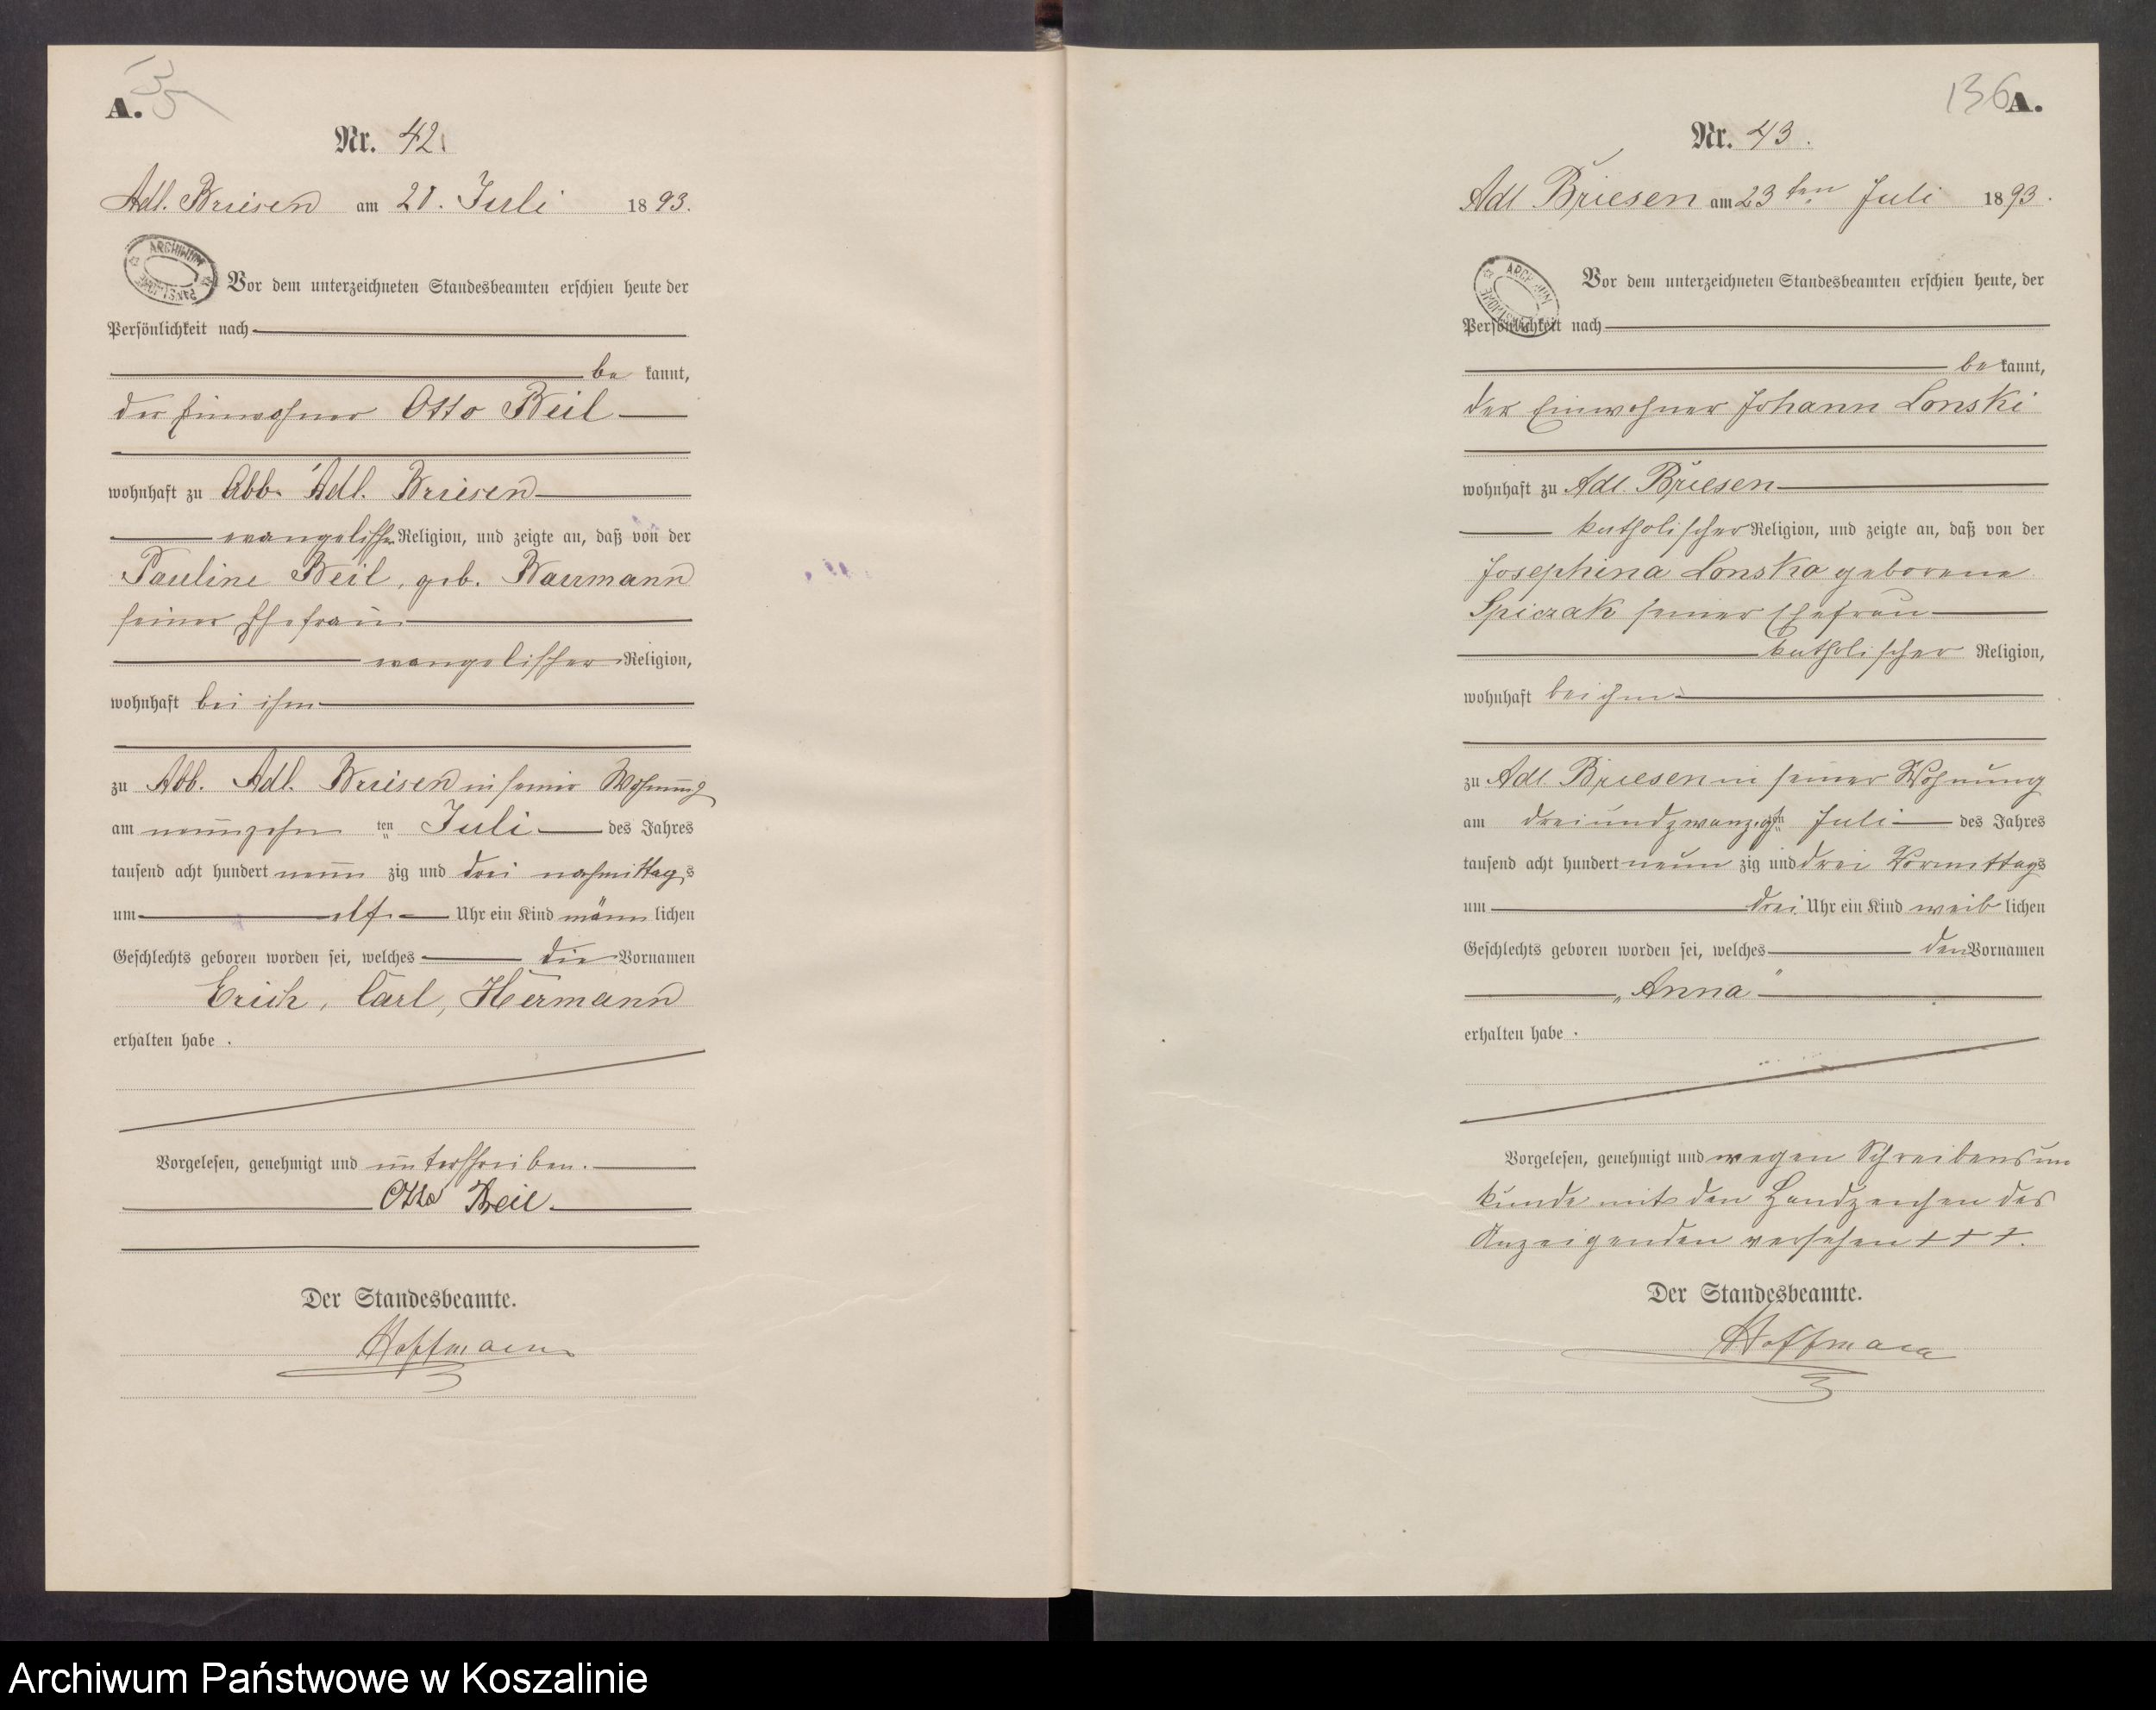 A. 35
Nr. 42.
Adl. Briesen am 21. Juli 1893.
ARCHIWUM PAŃSTWOWE
Vor dem unterzeichneten Standesbeamten erschien heute der
Persönlichkeit nach
be kannt,
der Einwohner Otto Beil
wohnhaft zu Abb. Adl. Briesen
evangelischer Religion, und zeigte an, daß von der
Pauline Beil, geb. Baermann
seiner Ehefrau
evangelischer Religion,
wohnhaft bei ihm
zu Abb. Adl. Briesen in seiner Wohnung
am neunzehn ten Juli des Jahres
tausend acht hundert neun zig und drei nachmittags
um elf Uhr ein Kind männ lichen
Geschlechts geboren worden sei, welches die Vornamen
Erich, Carl, Hermann
erhalten habe.
Vorgelesen, genehmigt und unterschrieben.
Otto Beil
Der Standesbeamte.
Hoffmann
136 A.
Nr. 43.
Adl Briesen am 23ten Juli 1893.
ARCHIWUM PAŃSTWOWE
Vor dem unterzeichneten Standesbeamten erschien heute, der
Persönlichkeit nach
be kannt,
der Einwohner Johann Lonski
wohnhaft zu Adl. Briesen
katholischer Religion, und zeigte an, daß von der
Josephina Lonska geborene
Spiczak seiner Ehefrau
katholischer Religion,
wohnhaft bei ihm
zu Adl. Briesen in seiner Wohnung
am dreiundzwanzigsten Juli des Jahres
tausend acht hundert neun zig und drei Vormittags
um drei Uhr ein Kind weib lichen
Geschlechts geboren worden sei, welches den Vornamen
„Anna"
erhalten habe.
Vorgelesen, genehmigt und wegen Schreibensun
kunde mit den Handzeichen des
Anzeigenden versehen + + +.
Der Standesbeamte.
Hoffmann
Archiwum Państwowe w Koszalinie